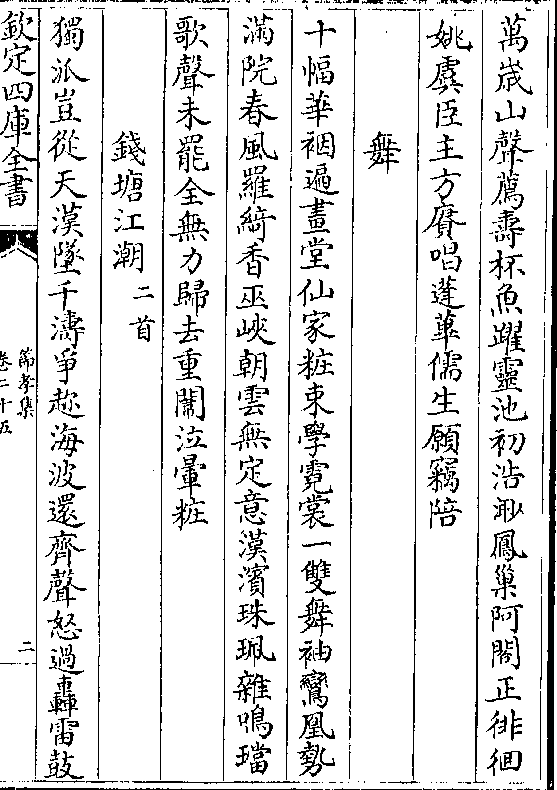 萬歲山聲薦壽杯魚躍靈池初浩渺鳳巢阿閣正徘徊
姚虞臣主方賡唱蓬蓽儒生願竊陪
舞
十幅華裀遍畫堂仙家粧束學霓裳一雙舞袖鸞凰勢
滿院春風羅綺香巫峽朝雲無定意漢濱珠珮雜鳴璫
歌聲未罷全無力歸去重關泣暈粧
錢塘江潮二首
獨派豈從天漢墜千濤爭趂海波還齊聲怒過轟雷鼓
欽定四庫全書
節孝集
卷二十五
二